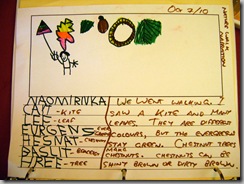 Oct 2/10
NATURE WALK NARRATION
NAOMIRIVKA WE WENT WALKING. I
-KITE SAW A KITE AND MANY
-LEAF LEAVES. THEY ARE DIFFERENT
EVRGENS COLOURS, BUT THE EVERGREENS
STAY GREEN. CHESTNUT TREES
MAKE
CHESTNUTS. CHESTNUTS CAN BE
-TREE SHINY BROWN OR DIRTY BROWN.